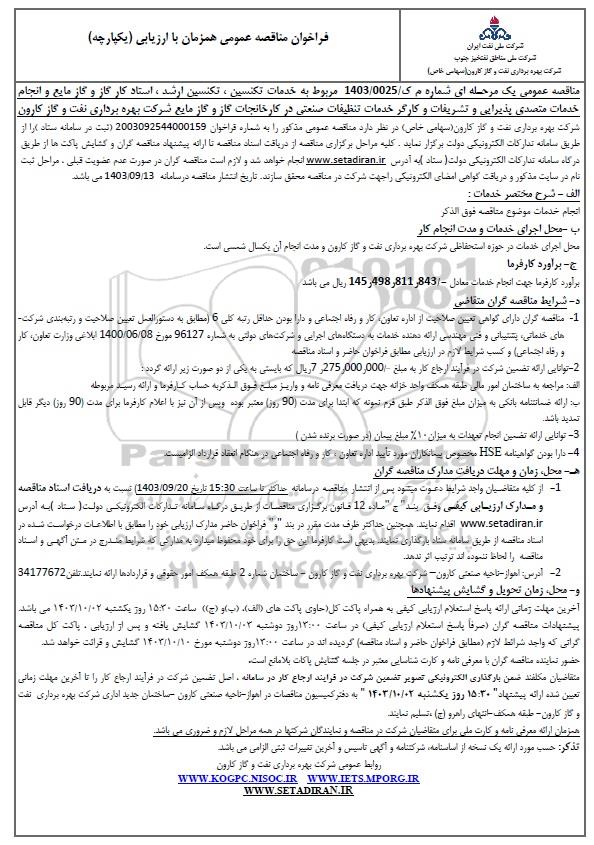 شرکت ملی نفت ایران
شرکت ملی مناطق نفتخیز جنوب
شرکت بهره برداری نفت و گاز کارون(سهامی خاص)
فراخوان مناقصه عمومی همزمان با ارزیابی (یکپارچه)
مناقصه عمومی یک مرحله ای شماره م ک/1403/0025 مربوط به خدمات تکنسین ، تکنسین ارشد ، استاد کار گاز و گاز مایع و انجام
خدمات متصدی پذیرایی و تشریفات و کارگر خدمات تنظیفات صنعتی در کارخانجات گاز و گاز مایع شرکت بهره برداری نفت و گاز کارون
شرکت بهره برداری نفت و گاز کارون(سهامی خاص) در نظر دارد مناقصه عمومی مذکور را به شماره فراخوان 2003092544000159 (ثبت در سامانه ستاد )را از
طریق سامانه تدارکات الکترونیکی دولت برگزار نماید . کلیه مراحل برگزاری مناقصه از دریافت اسناد مناقصه تا ارائه پیشنهاد مناقصه گران و گشایش پاکت ها از طریق
درگاه سامانه تدارکات الکترونیکی دولت( ستاد )به آدرس www.setadiran.ir انجام خواهد شد و لازم است مناقصه گران در صورت عدم عضویت قبلی ، مراحل ثبت
نام در سایت مذکور و دریافت گواهی امضای الکترونیکی راجهت شرکت در مناقصه محقق سازند. تاریخ انتشار مناقصه درسامانه 1403/09/13 می باشد.
الف – شرح مختصر خدمات :
انجام خدمات موضوع مناقصه فوق الذکر
ب –محل اجرای خدمات و مدت انجام کار
محل اجرای خدمات در حوزه استحفاظی شرکت بهره برداری نفت و گاز کارون و مدت انجام آن یکسال شمسی است.
ج- برآورد کارفرما
برآورد کارفرما جهت انجام خدمات معادل -/145,498,811,843 ریال می باشد
د- شرایط مناقصه گران متقاضی
1- مناقصه گران دارای گواهی تعیین صلاحیت از اداره تعاون، کار و رفاه اجتماعی و دارا بودن حداقل رتبه کلی 6 (مطابق به دستورالعمل تعیین صلاحیت و رتبه‌بندی شرکت-
های خدماتی، پشتیبانی و فنی مهندسی ارائه دهنده خدمات به دستگاه‌های اجرایی و شرکت‌های دولتی به شماره 96127 مورخ 1400/06/08 ابلاغی وزارت تعاون، کار
و رفاه اجتماعی) و کسب شرایط لازم در ارزیابی مطابق فراخوان حاضر و اسناد مناقصه
2-توانایی ارائه تضمین شرکت در فرآیند ارجاع کار به مبلغ -/7,275,000,000 ریال که بایستی به یکی از دو صورت زیر ارائه گردد :
الف: مراجعه به ساختمان امور مالی طبقه همکف واحد خزانه جهت دریافت معرفی نامه و واریز مبلغ فوق الذکربه حساب کارفرما و ارائه رسید مربوطه
ب: ارائه ضمانتنامه بانکی به میزان مبلغ فوق الذکر طبق فرم نمونه که ابتدا برای مدت (90 روز) معتبر بوده وپس از آن نیز با اعلام کارفرما برای مدت (90 روز) دیگر قابل
تمدید باشد.
3- توانایی ارائه تضمین انجام تعهدات به میزان ۱۰٪ مبلغ پیمان (در صورت برنده شدن )
4- دارا بودن گواهینامه HSE مخصوص پیمانکاران مورد تأیید اداره تعاون ، کار و رفاه اجتماعی در هنگام انعقاد قرارداد الزامیست.
هـ- محل، زمان و مهلت دریافت مدارک مناقصه گران
1- از کلیه متقاضیان واجد شرایط دعوت میشود پس از انتشار مناقصه درسامانه حداکثر تا ساعت 15:30 تاریخ 1403/09/20) نسبت به دریافت اسناد مناقصه
و مدارک ارزیابی کیفی وفق بند" ج "ماده 12 قانون برگزاری مناقصات از طریق درگاه سامانه تدارکات الکترونیکی دولت( ستاد )به آدرس
www.setadiran.ir اقدام نمایند. همچنین حداکثر ظرف مدت مقرر در بند "و" فراخوان حاضر مدارک ارزیابی خود را مطابق با اطلاعات درخواست شده در
اسناد مناقصه از طریق سامانه ستاد بارگذاری نمایند. بدیهی است کارفرما این حق را برای خود محفوظ میدارد به مدارکی که شرایط مندرج در متن آگهی و اسناد
مناقصه را لحاظ ننموده اند ترتیب اثر ندهد.
2- آدرس: اهواز–ناحیه صنعتی کارون– شرکت بهره برداری نفت و گاز کارون – ساختمان شماره 2 طبقه همکف امور حقوقی و قراردادها ارائه نمایند.تلفن34177672
و- محل، زمان تحویل و گشایش پیشنهادها
آخرین مهلت زمانی ارائه پاسخ استعلام ارزیابی کیفی به همراه پاکت کل(حاوی پاکت های (الف)، (ب)و (ج)) ساعت ۱۵:۳۰ روز یکشنبه ۱۴۰۳/۱۰/۰۲ می باشد.
پیشنهادات مناقصه گران (صرفاً پاسخ استعلام ارزیابی کیفی) در ساعت ۱۳:۰۰روز دوشنبه ۱۴۰۳/۱۰/۰۳ گشایش یافته و پس از ارزیابی ، پاکت کل مناقصه
گرانی که واجد شرائط لازم (مطابق فراخوان حاضر و اسناد مناقصه) گردیده اند در ساعت ۱۳:۰۰روز دوشنبه مورخ ۱۴۰۳/۱۰/۱۰ گشایش و قرائت خواهد شد.
حضور نماینده مناقصه گران با معرفی نامه و کارت شناسایی معتبر در جلسه گشایش پاکات بلامانع است.
متقاضیان مکلفند ضمن بارگذاری الکترونیکی تصویر تضمین شرکت در فرایند ارجاع کار در سامانه ، اصل تضمین شرکت در فرآیند ارجاع کار را تا آخرین مهلت زمانی
تعیین شده ارائه پیشنهاد" ۱۵:۳۰ روز یکشنبه ۱۴۰۳/۱۰/۰۲ " به دفترکمیسیون مناقصات در اهواز-ناحیه صنعتی کارون –ساختمان جدید اداری شرکت بهره برداری نفت
و گاز کارون- طبقه همکف-انتهای راهرو (ج) ،تسلیم نمایند.
همزمان ارائه معرفی نامه و کارت ملی برای متقاضیان شرکت در مناقصه و نمایندگان شرکتها در همه مراحل لازم و ضروری می باشد.
تذکر: حسب مورد ارائه یک نسخه از اساسنامه، شرکتنامه و آگهی تاسیس و آخرین تغییرات ثبتی الزامی می باشد.
روابط عمومی شرکت بهره برداری نفت و گاز کارون
WWW.KOGPC.NISOC.IR WWW.IETS.MPORG.IR
WWW.SETADIRAN.IR